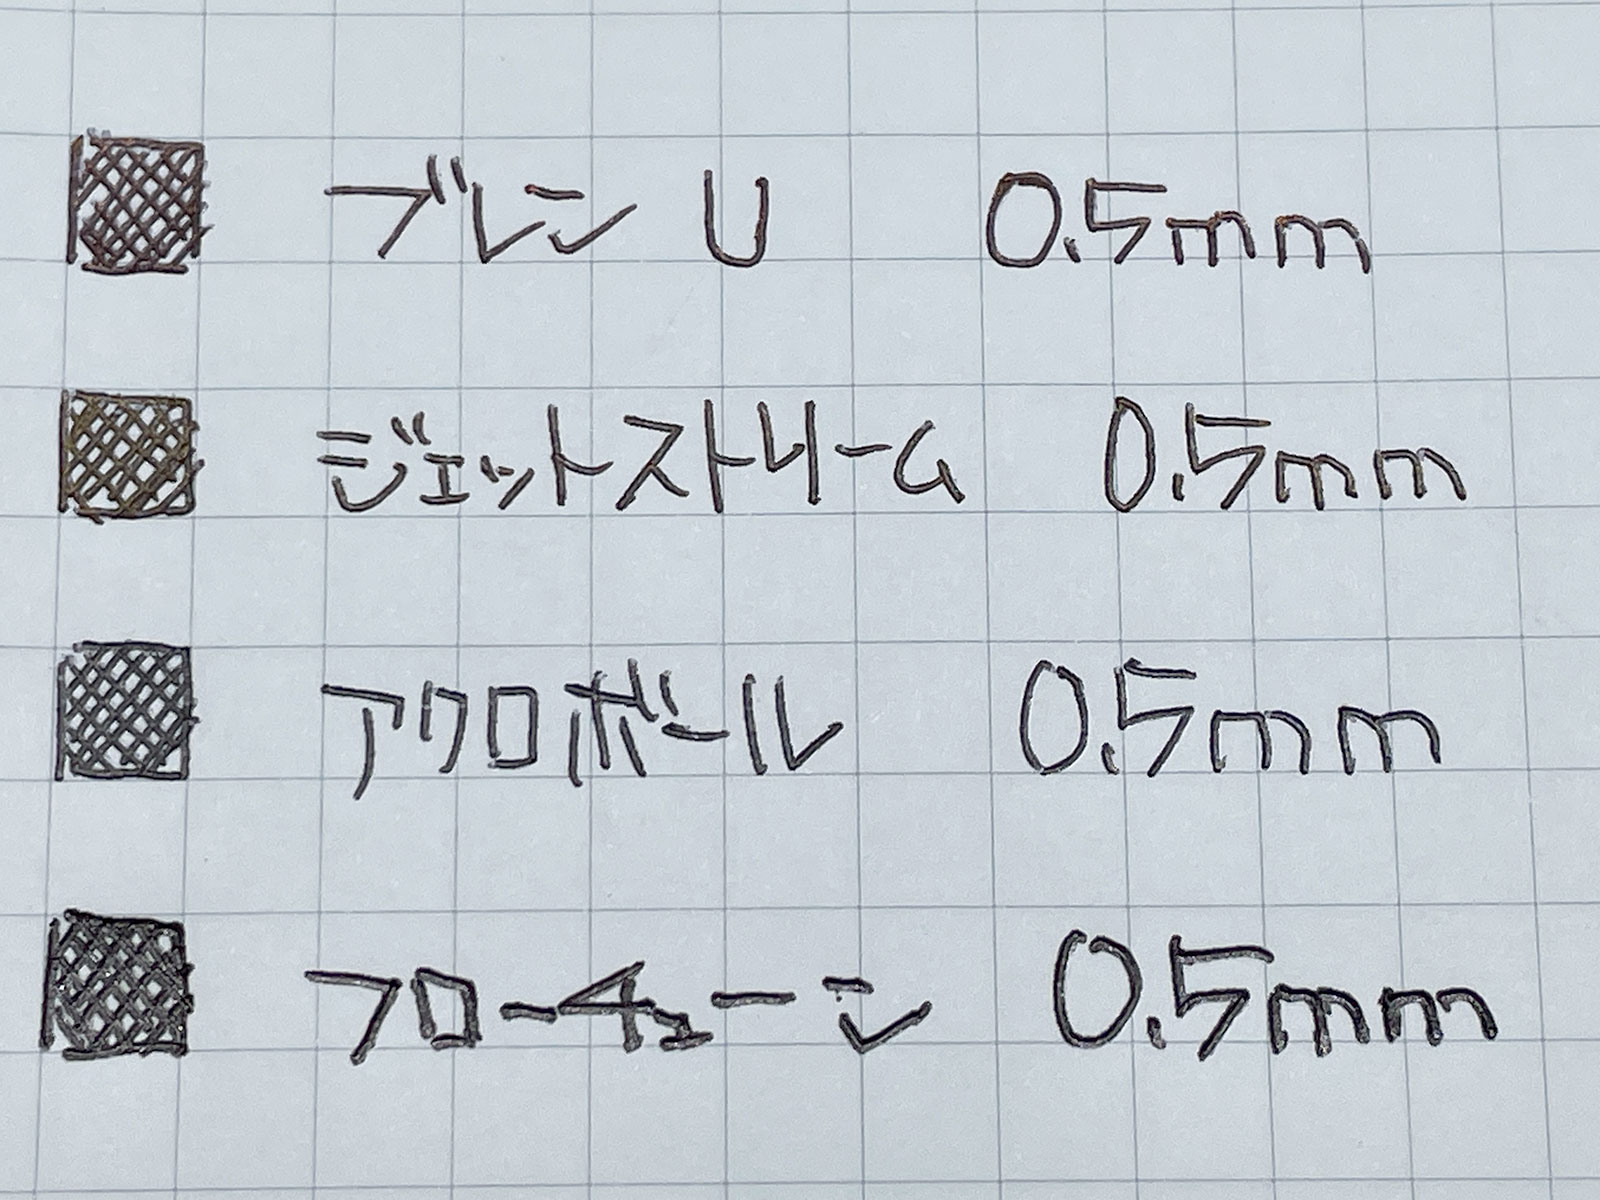 ブレン U 0.5mm
ジェットストリーム 0.5mm
アクロボール 0.5mm
フローチューン 0.5mm